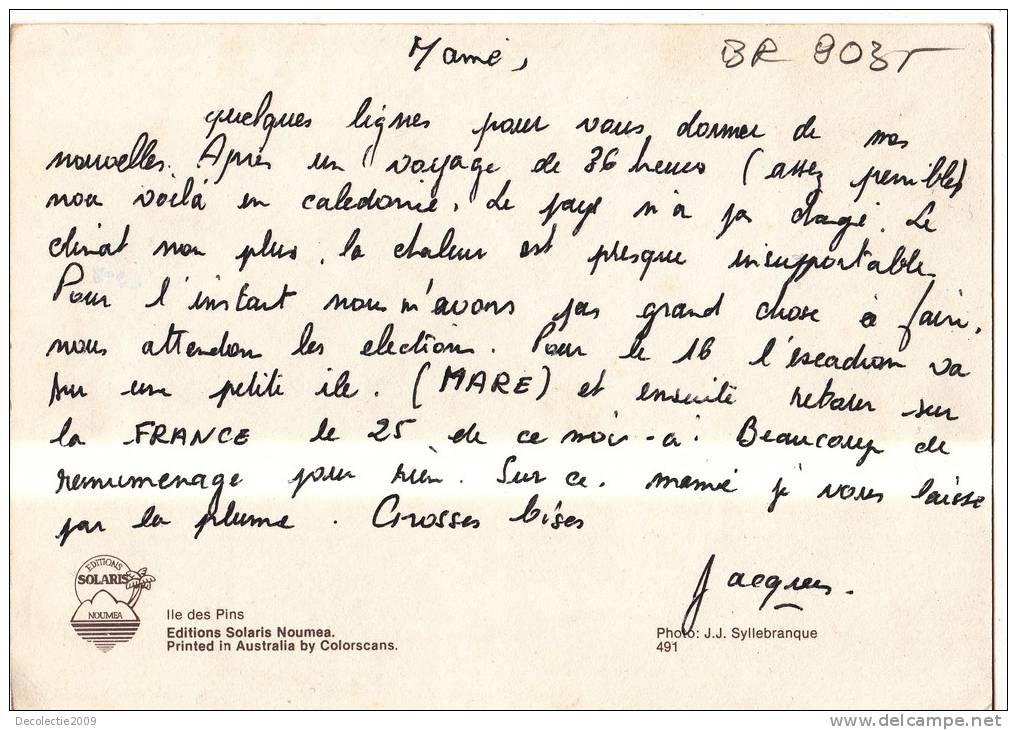 Mamé, BR 9035
quelques lignes pour vous donner de nos
nouvelles. Après un voyage de 36 heures (assez penible)
nou voilà en caledonie. Le pays n'a pa changé. Le
climat non plus, la chaleur est presque insupportable.
Pour l'instant nous n'avons pas grand chose à faire,
nous attendon les elections. Pour le 16 l'escadron va
sur une petite ile. (MARE) et ensuite retour sur
la FRANCE le 25 de ce moi-ci. Beaucoup de
remumenage pour rien. Sur ce, mamé je vous laisse
par la plume. Grosses bises
Jacques.
EDITIONS
SOLARIS
NOUMEA
Ile des Pins
Editions Solaris Noumea.
Printed in Australia by Colorscans.
Photo: J.J. Syllebranque
491
Decolectie2009
www.delcampe.net